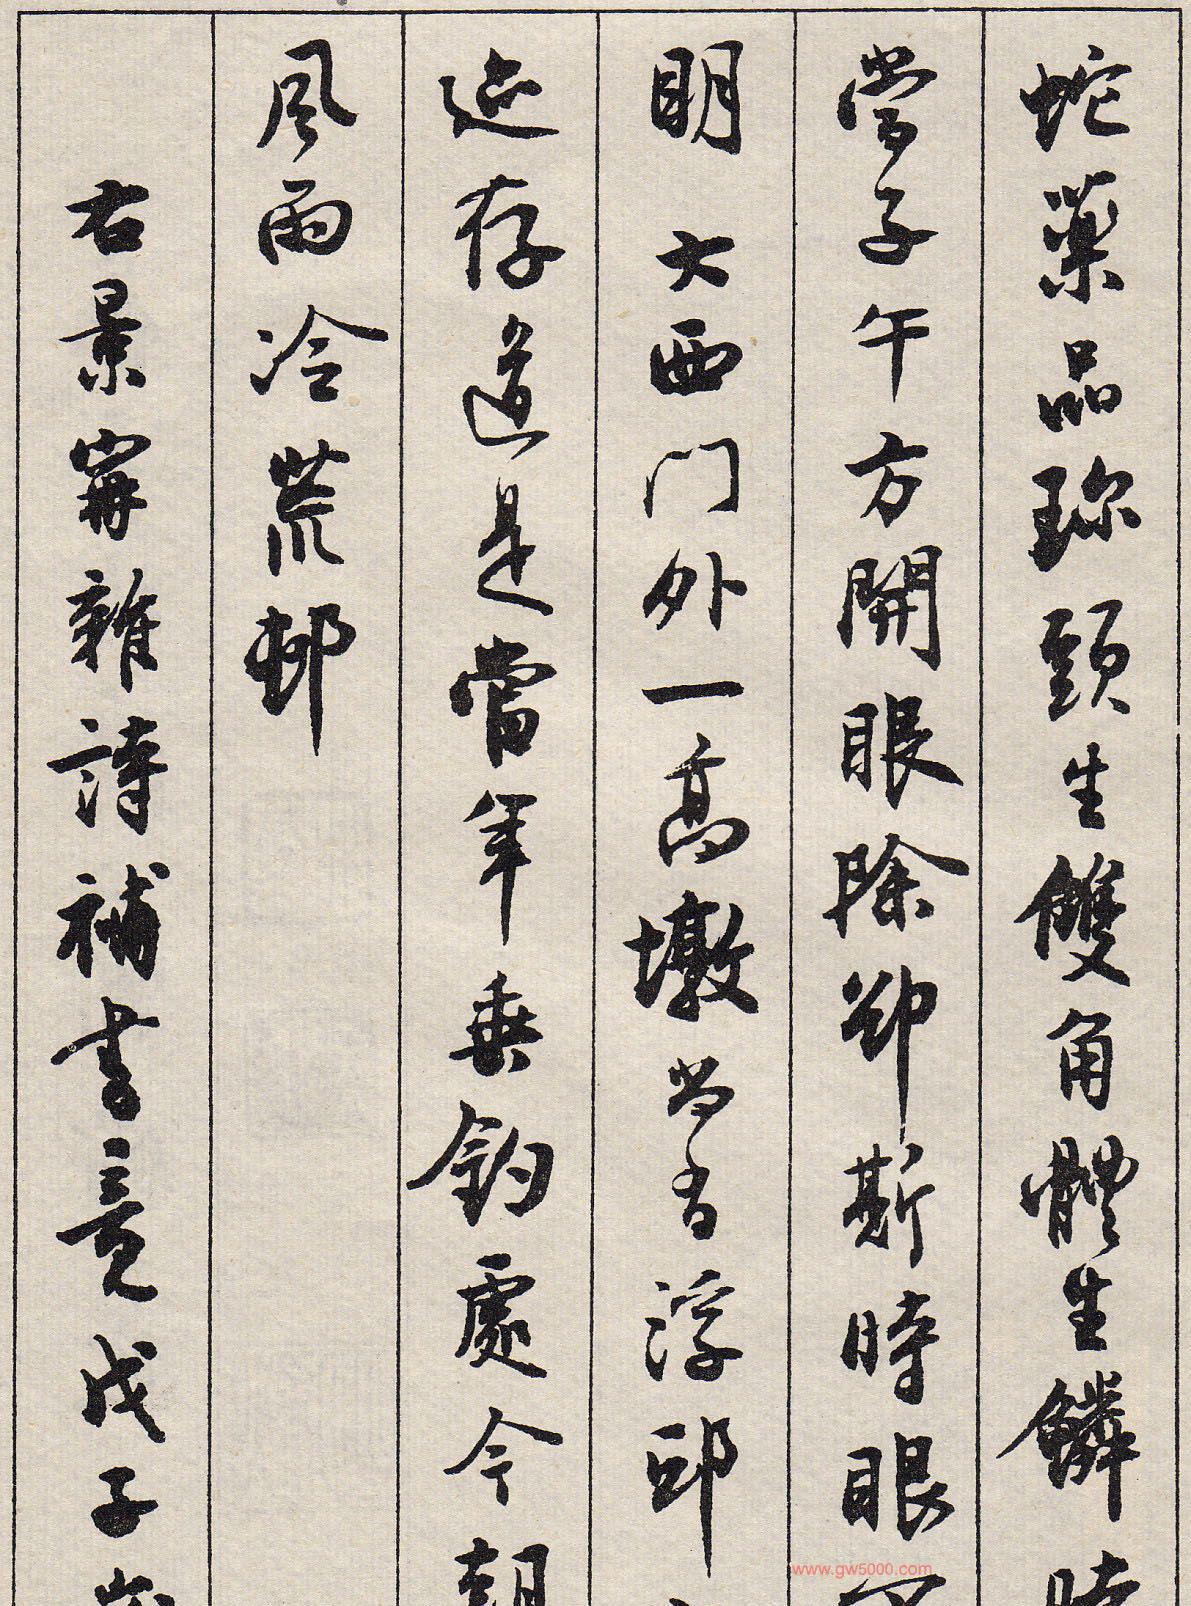 蛇藥品珍頸生雙角體生鱗時
當子午方開眼除卻斯時眼不
明 大西门外一高墩尚有浮邱
迹存道是當年垂釣處今朝
風雨冷荒邨
右景寗雜詩補書竟戊子歲
www.gw5000.com